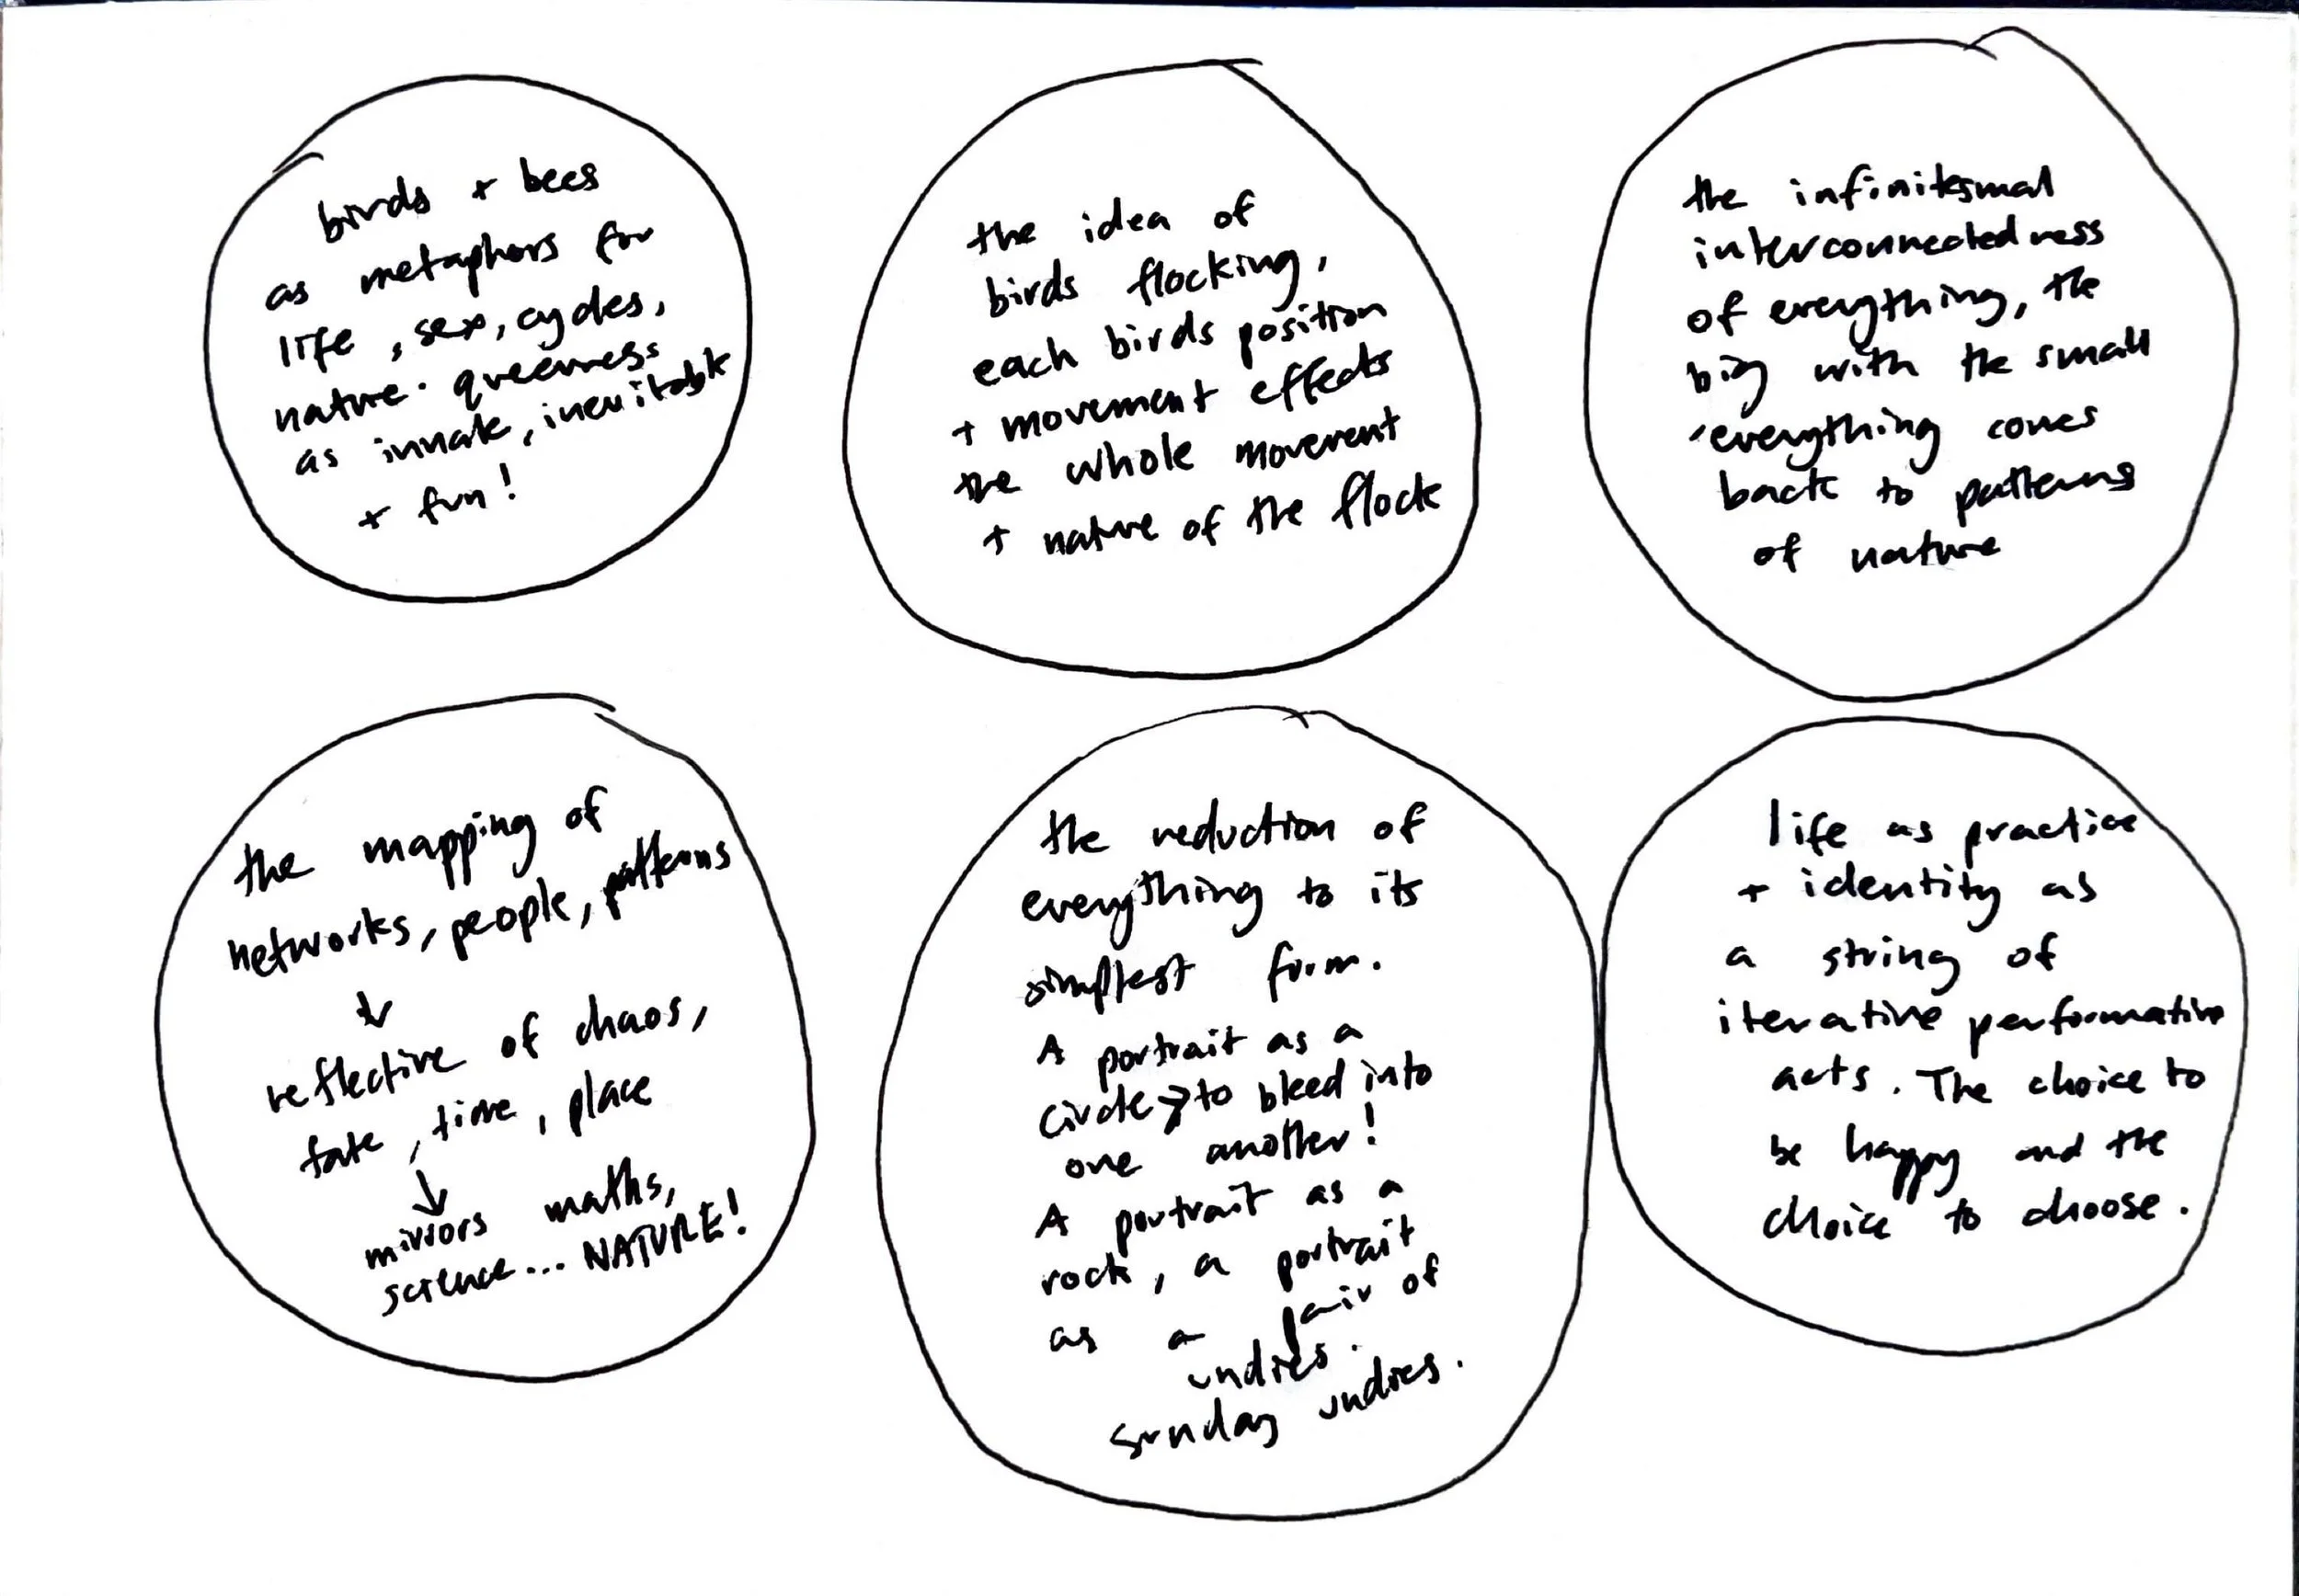 birds + bees
as metaphors for
life, sex, cycles,
nature. queerness
as innate, inevitable
+ fun!
the idea of
birds flocking,
each birds position
+ movement effects
the whole movement
+ nature of the flock
the infinitesmal
interconnectedness
of everything, the
big with the small
-everything comes
back to patterns
of nature
the mapping of
networks, people, patterns
↓
reflective of chaos,
fate, time, place
↓
mirrors maths,
science... NATURE!
the reduction of
everything to its
simplest form.
A portrait as a
circle → to bleed into
one another!
A portrait as a
rock, a portrait
as a pair of
undies.
sunday undies.
life as practice
+ identity as
a string of
iterative performative
acts. The choice to
be happy and the
choice to choose.